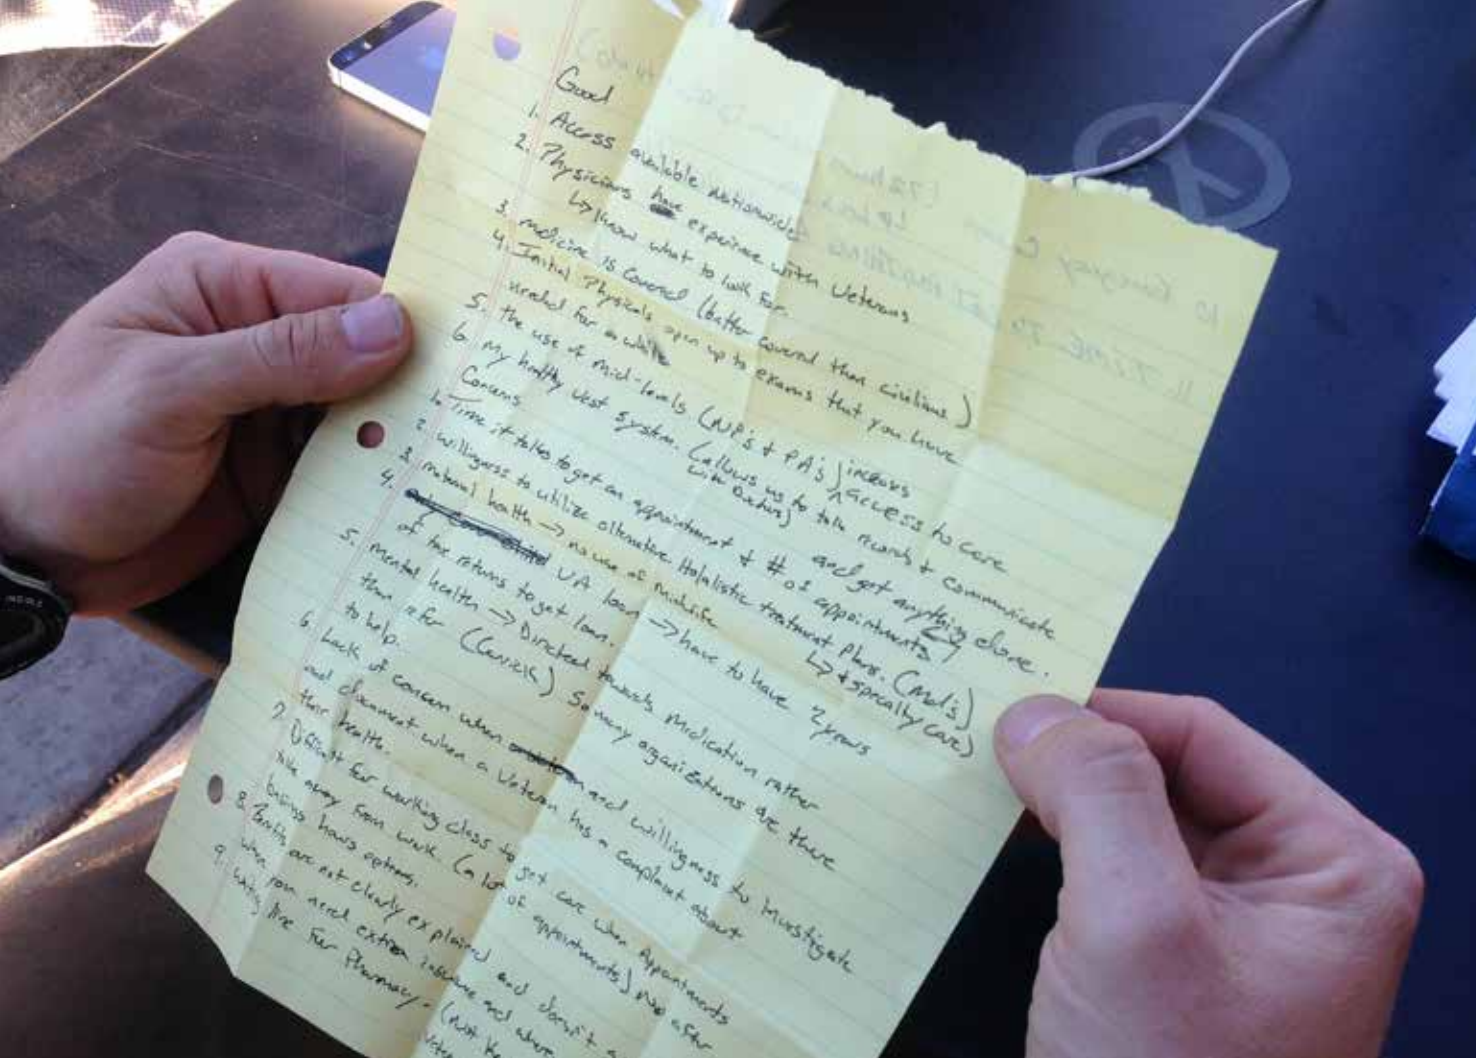 Good
1. Access available Nationwide
2. Physicians have experience with Veterans
↳ Know what to look for.
3. Medicine is covered (better covered than civilians)
4. Initial Physicals open up to exams that you have
needed for a while
5. the use of Mid-levels (NP's & PA's) increases access to care
6. My healthy vest system. (allows us to talk records & communicate
with Doctors) and get anything done.
Concerns
1. Time it takes to get an appointment & # of appointments
2. willingness to utilize alternative Holalistic treatment plans. (Meds)
↳ & specialty care)
3. maternal health → no use of midwife
4. VA loan → have to have 2 years
of tax returns to get loan.
5. mental health → Directed towards Medication rather
than refer So many organizations are there
to help.
6. Lack of concern when and willingness to investigate
and document when a Veteran has a complaint about
their health.
7. Difficult for working class to get care when Appointments
take away from work. (a lot of appointments) after
business hours options.
8. are not clearly explained and doesn't
when you need extra and where
9. Waiting line for Pharmacy.
10 Emergency
11.